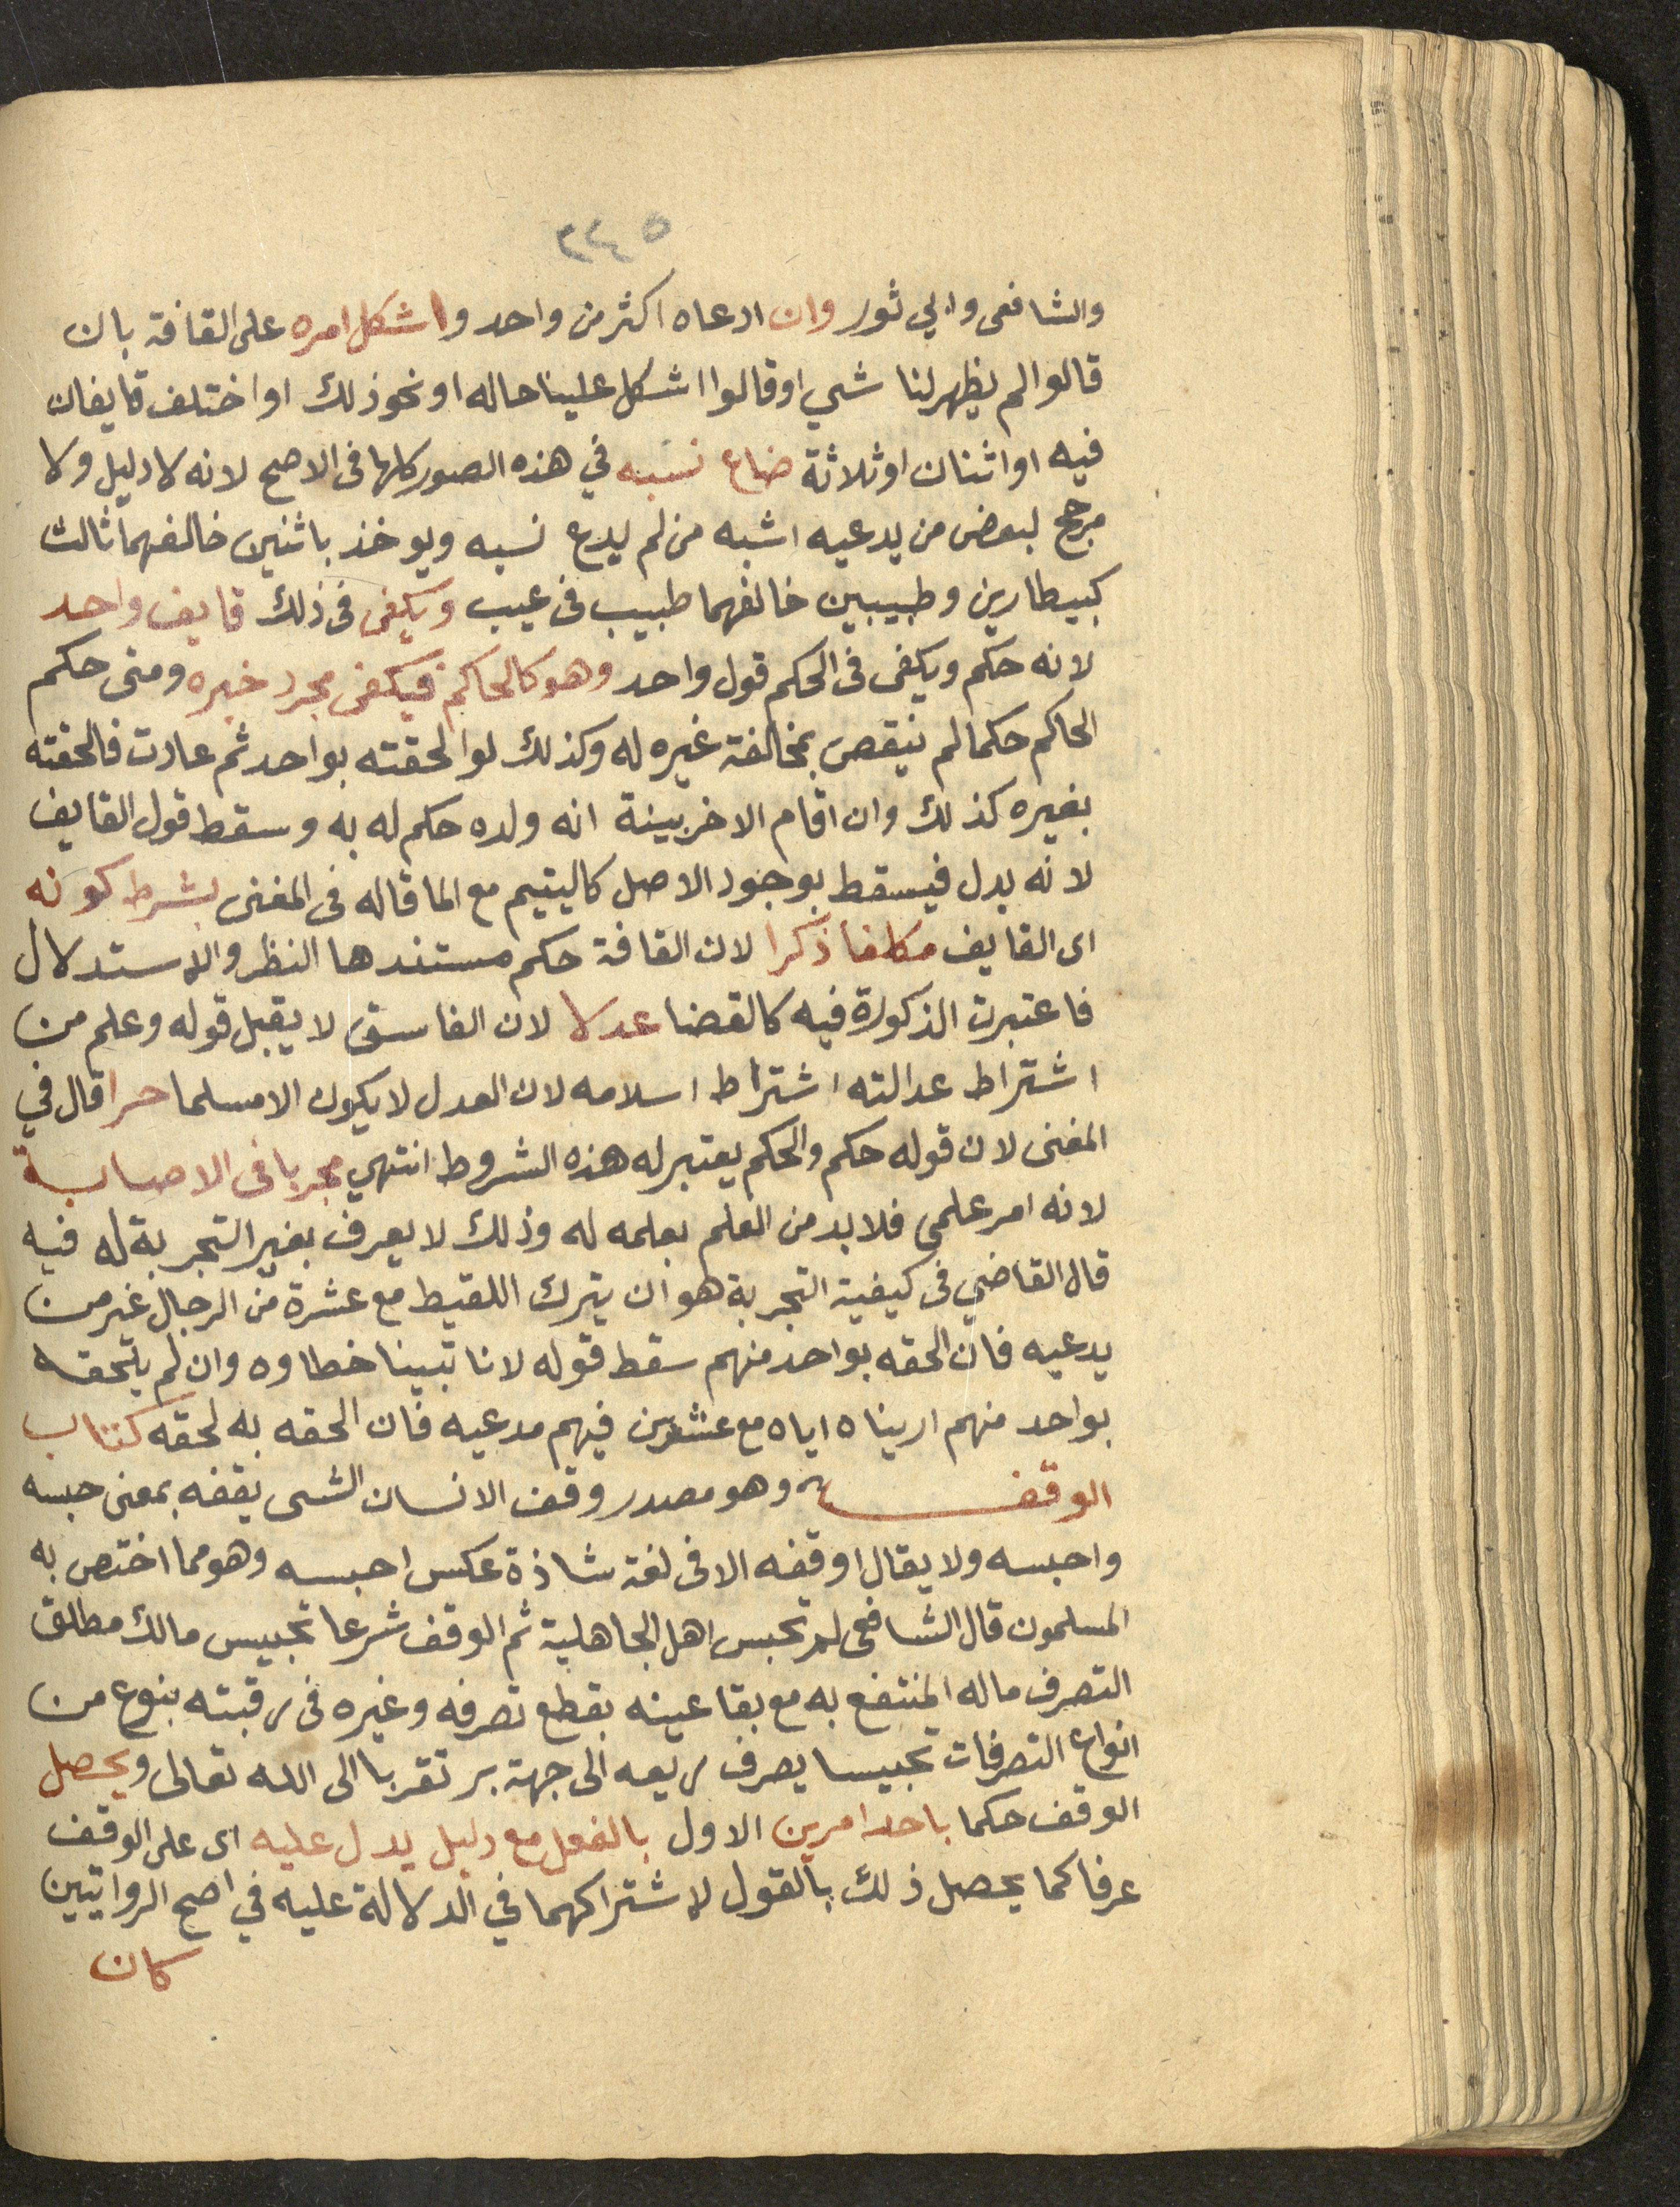 والشافعى وابي ثور وان ادعاه اكثر من واحد واشكل امره على القافة بان
قالوا لم يظهر لنا شي او قالوا اشكل علينا حاله او نحو ذلك او اختلف قايفان
فيه او اثنان او ثلاثة ضاع نسبه في هذه الصور كلها فى الاصح لانه لا دليل ولا
مرجح لبعض من يدعيه اشبه من لم يدع نسبه ويوخذ باثنين خالفهما ثالث
كبيطارين وطبيبين خالفهما طبيب فى عيب ويكفى فى ذلك قايف واحد
لانه حكم ويكفى فى الحكم قول واحد وهو كالحاكم فيكفى مجرد خبره ومتى حكم
الحاكم حكما لم ينقض بمخالفة غيره له وكذلك لو الحقته بواحد ثم عادت فالحقته
بغيره كذلك وان اقام الاخر بينة انه ولده حكم له به وسقط قول القايف
لانه بدل فيسقط بوجود الاصل كاليتيم مع الما قاله فى المغنى بشرط كونه
اى القايف مكلفا ذكرا لان القافة حكم مستندها النظر والاستدلال
فاعتبرت الذكورة فيه كالقضا عدلا لان الفاسق لا يقبل قوله وعلم من
اشتراط عدالته اشتراط اسلامه لان العدل لا يكون الا مسلما حرا قال في
المغنى لان قوله حكم والحكم يعتبر له هذه الشروط انتهي مجربا فى الاصابة
لانه امر علمى فلا بد من العلم بعلمه له وذلك لا يعرف بغير التجربة له فيه
قال القاضي فى كيفية التجربة هو ان يترك اللقيط مع عشرة من الرجال غير من
يدعيه فان الحقه بواحد منهم سقط قوله لانا تبينا خطاوه وان لم يلحقه
بواحد منهم اريناه اياه مع عشرين فيهم مدعيه فان الحقه به لحقه كتاب
الوقف وهو مصدر وقف الانسان الشى يقفه بمعنى حبسه
واحبسه ولا يقال اوقفه الا فى لغة شاذة عكس احبسه وهو مما اختص به
المسلمون قال الشافعى لم تحبس اهل الجاهلية ثم الوقف شرعا تحبيس مالك مطلق
التصرف ماله المنتفع به مع بقا عينه بقطع تصرفه وغيره فى رقبته بنوع من
انواع التصرفات تحبيسا يصرف ريعه الى جهة بر تقربا الى الله تعالى ويحصل
الوقف حكما باحد امرين الاول بالفعل مع دليل يدل عليه اى على الوقف
عرفا كما يحصل ذلك بالقول لاشتراكهما في الدلالة عليه في اصح الروايتين
كان